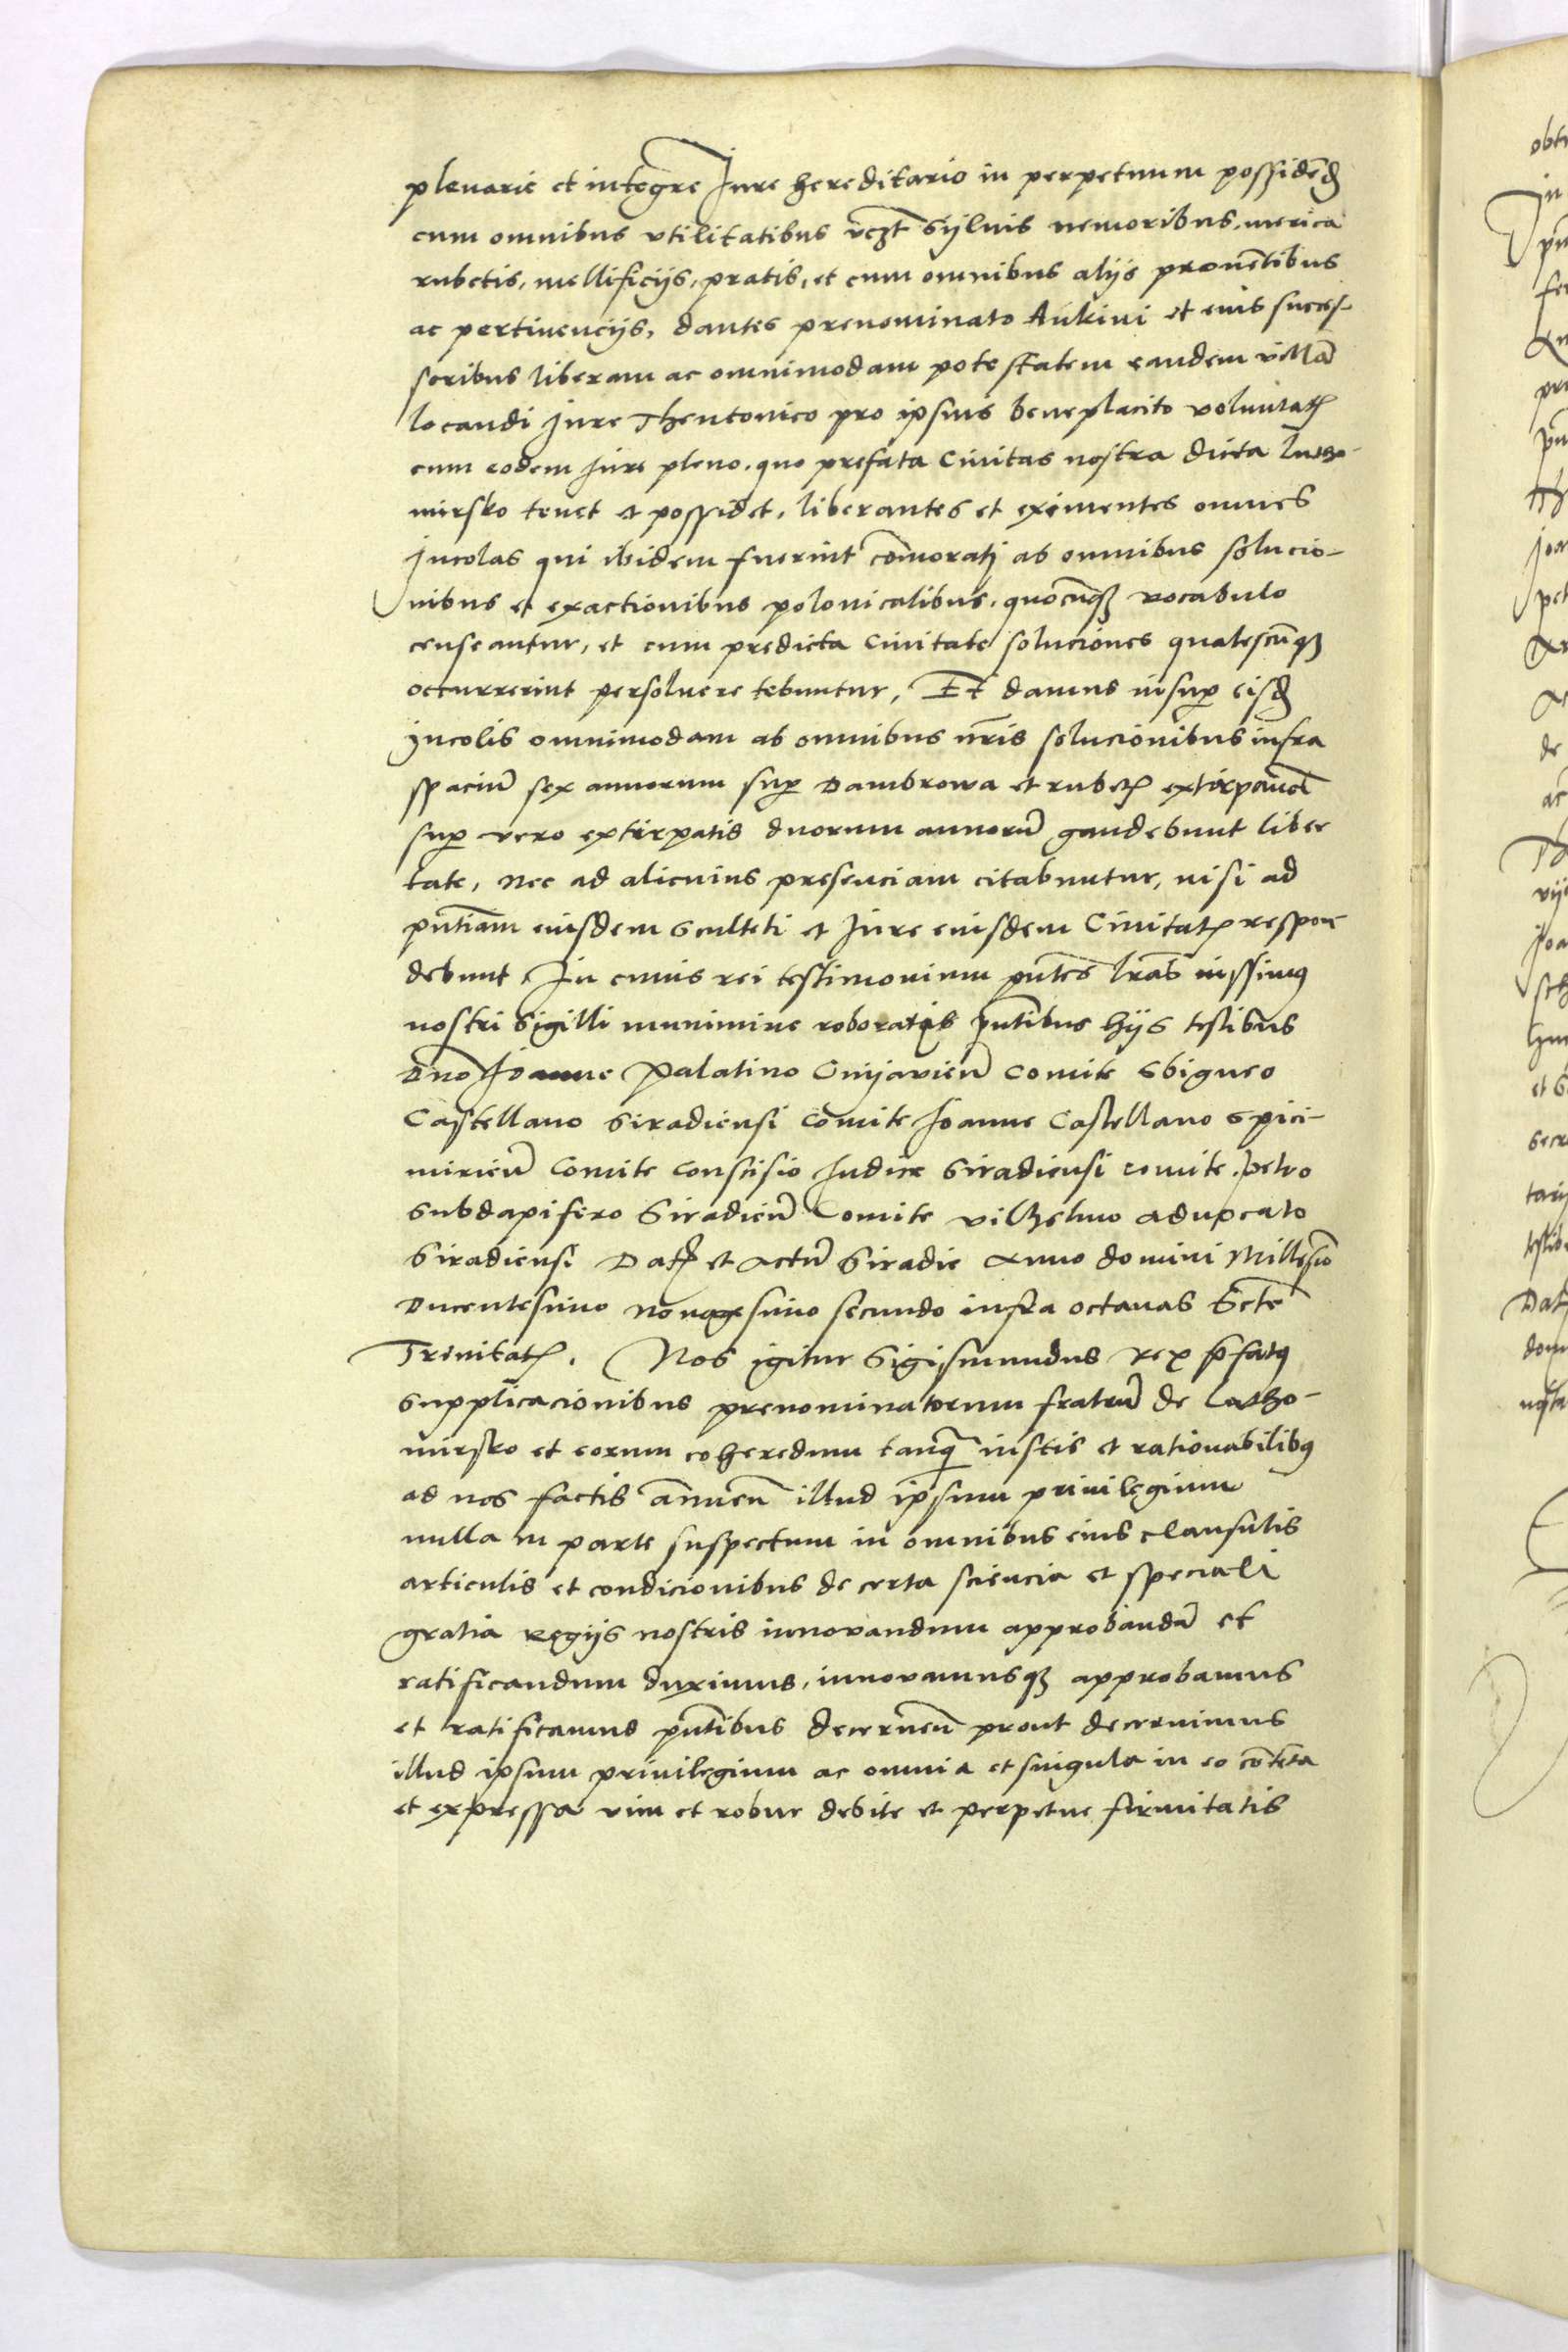 plenarie et integre Jure hereditario in perpetuum possidēd
cum omnibus vtilitatibus vczt Sijluis nemoribus, merica
rubetis, mellificijs, pratis, et cum omnibus alijs prouētibus
ac pertinencijs, dantes prenominato Ankini et eius succes-
soribus liberam ac omnimodam potestatem eandem villā
locandi Jure Theutonico pro ipsius beneplacito voluntatꝭ
cum eodem Jure pleno, quo prefata Ciuitas nostra dicta Lutho-
mirsko tenet et possidet, liberantes et eximentes omnes
Jncolas qui ibidem fuerint cōmorati ab omnibus solucio-
nibus et exactionibus polonicalibus, quocūqȝ vocabulo
censeantur, et cum predicta Ciuitate soluciones qualescūqȝ
occurrerint persoluere tebuntur, Et damus insup eisd
Jncolis omnimodam ab omnibus nr̄is solucionibus infra
spaciū sex annorum sup Dambrowa et rubetꝭ extirpaueō
sup vero extirpatis duorum annorū gaudebunt liber
tate, Nec ad alicuius presenciam citabuntur, nisi ad
pn̄tiam eiusdem Sculteti et Jure eiusdem Ciuitatꝭ respon
debunt, Jn cuius rei testimonium pn̄tes l̄ras iussimꝰ
nostri Sigilli munimine roboratas pn̄tibus hijs testibus
Dn̄o Joanne Palatino Cuijavieñ Comite Sbigneo
Castellano Siradiensi Comite Joanne Castellano Spici-
mirieñ Comite Conscisio Judice Siradiensi comite Petro
Subdapifero Siradieñ Comite Vilhelmo aduocato
Siradiensi Datꝭ et actū Siradie Anno domini Millesīo
Ducentesimo nonagesimo secundo infra octauas Scte
Trinitatꝭ. Nos igitur Sigismundus Rex p̄fatꝰ
Supplicacionibus prenominatorum fratrū de Latho-
mirsko et eorum coheredum tanq̄ iustis et rationabilibꝰ
ad nos factis añueñ illud ipsum priuilegium
nulla in parte suspectum in omnibus eius clausulis
articulis et condicionibus de certa sciencia et speciali
gratia Regijs nostris innovandum approbandū et
ratificandum duximus, innovamusqȝ approbamus
et ratificamus pn̄tibus decerneñ prout decernimus
illud ipsum priuilegium ac omnia et singula in eo cōtēta
et expressa vim et robur debite et perpetue firmitatis